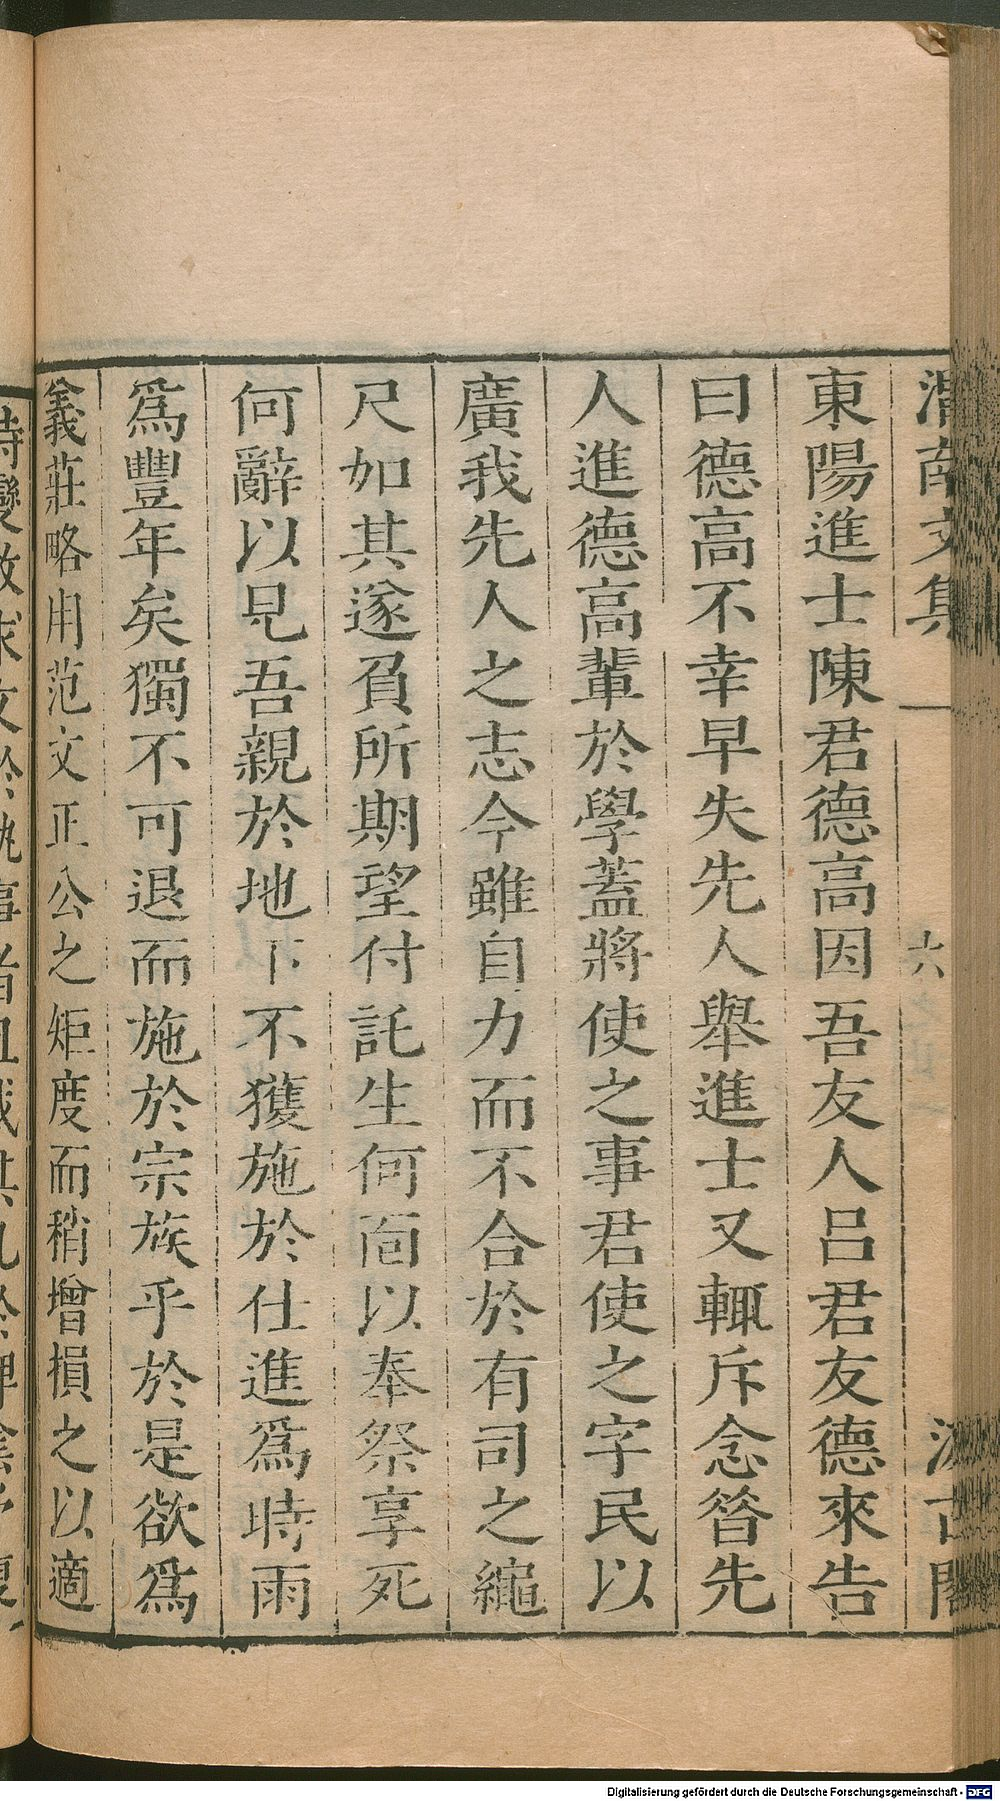 渭南文集
六
汲古閣
東陽進士陳君德高因吾友人吕君友德來告
曰德高不幸早失先人舉進士又輒斥念昝先
人進德高輩於學蓋將使之事君使之字民以
廣我先人之志今雖自力而不合於有司之繩
尺如其遂負所期望付託生何靣以奉祭享死
何辭以見吾親於地下不獲施於仕進爲時雨
爲豐年矣獨不可退而施於宗族乎於是欲爲
義莊略用范文正公之矩度而稍增損之以適
Digitalisierung gefördert durch die Deutsche Forschungsgemeinschaft - DFG